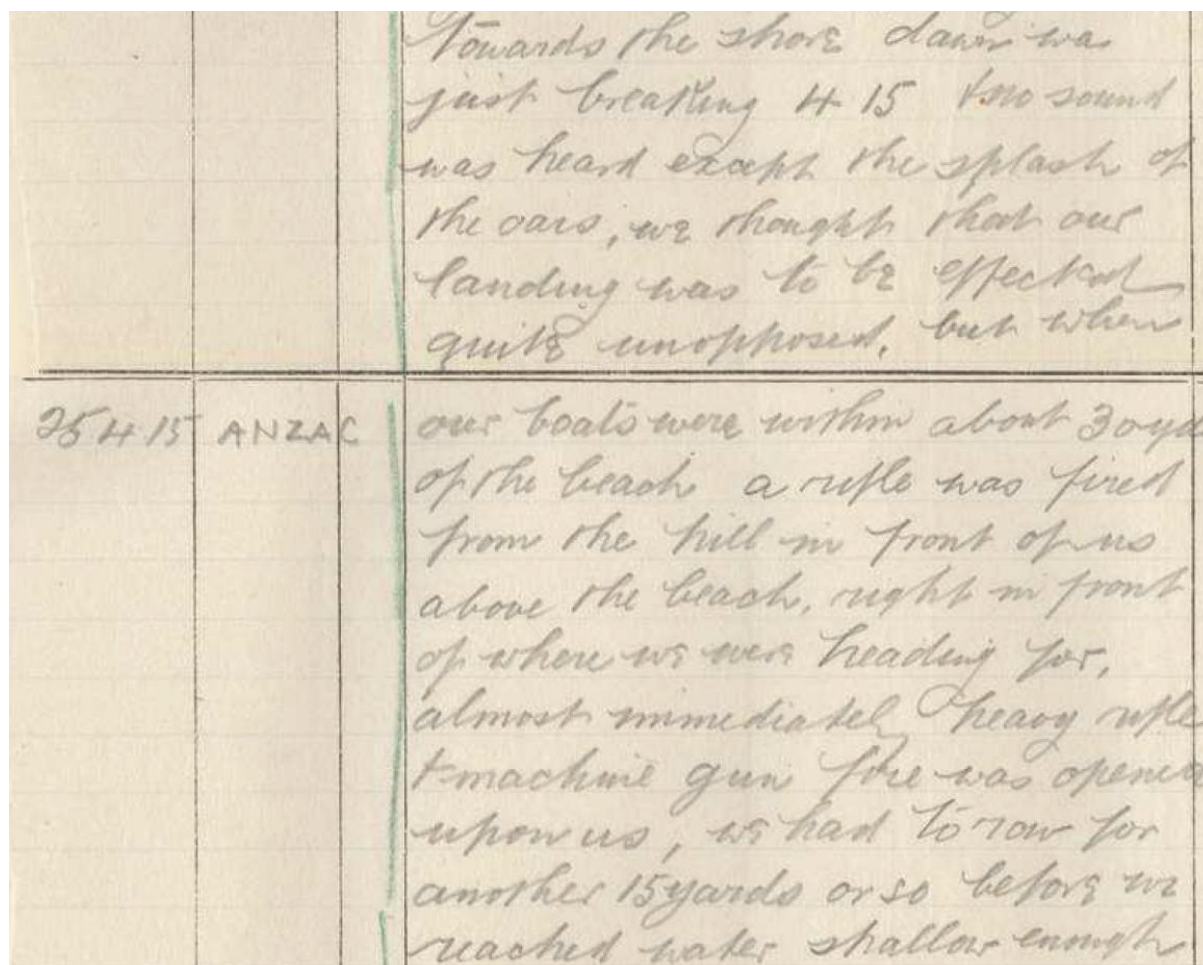 Towards the shore dawn was
just breaking 4 15 & no sound
was heard except the splash of
the oars, we thought that our
landing was to be effected
quite unopposed, but when
25 4 15 ANZAC our boats were within about 30 yd
of the beach a rifle was fired
from the hill in front of us
above the beach, right in front
of where we were heading for,
almost immediately heavy rifle
& machine gun fire was opened
upon us, we had to row for
another 15 yards or so before we
reached water shallow enough